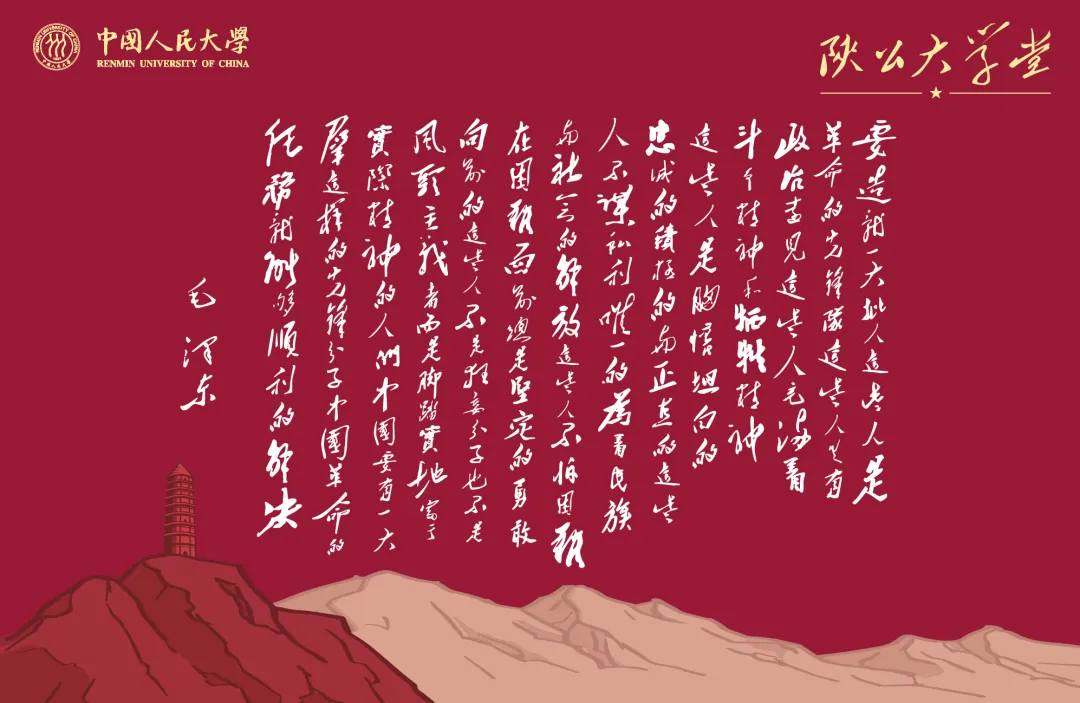 中國人民大學
RENMIN UNIVERSITY OF CHINA
RENMIN UNIVERSITY OF CHINA
中国人民大学
陝公大学堂
要造就一大批人這些人是
革命的先鋒隊這些人具有
政治遠見這些人充滿着
斗爭精神和牺牲精神
這些人是胸懷坦白的
忠诚的積極的與正直的這些
人不謀私利唯一的為着民族
與社会的解放這些人不怕困難
在困難面前總是堅定的勇敢
向前的這些人不是狂妄分子也不是
風頭主義者而是脚踏實地富于
實際精神的人們中國要有一大
羣這樣的先鋒分子中國革命的
任務就能够順利的解決
毛泽东